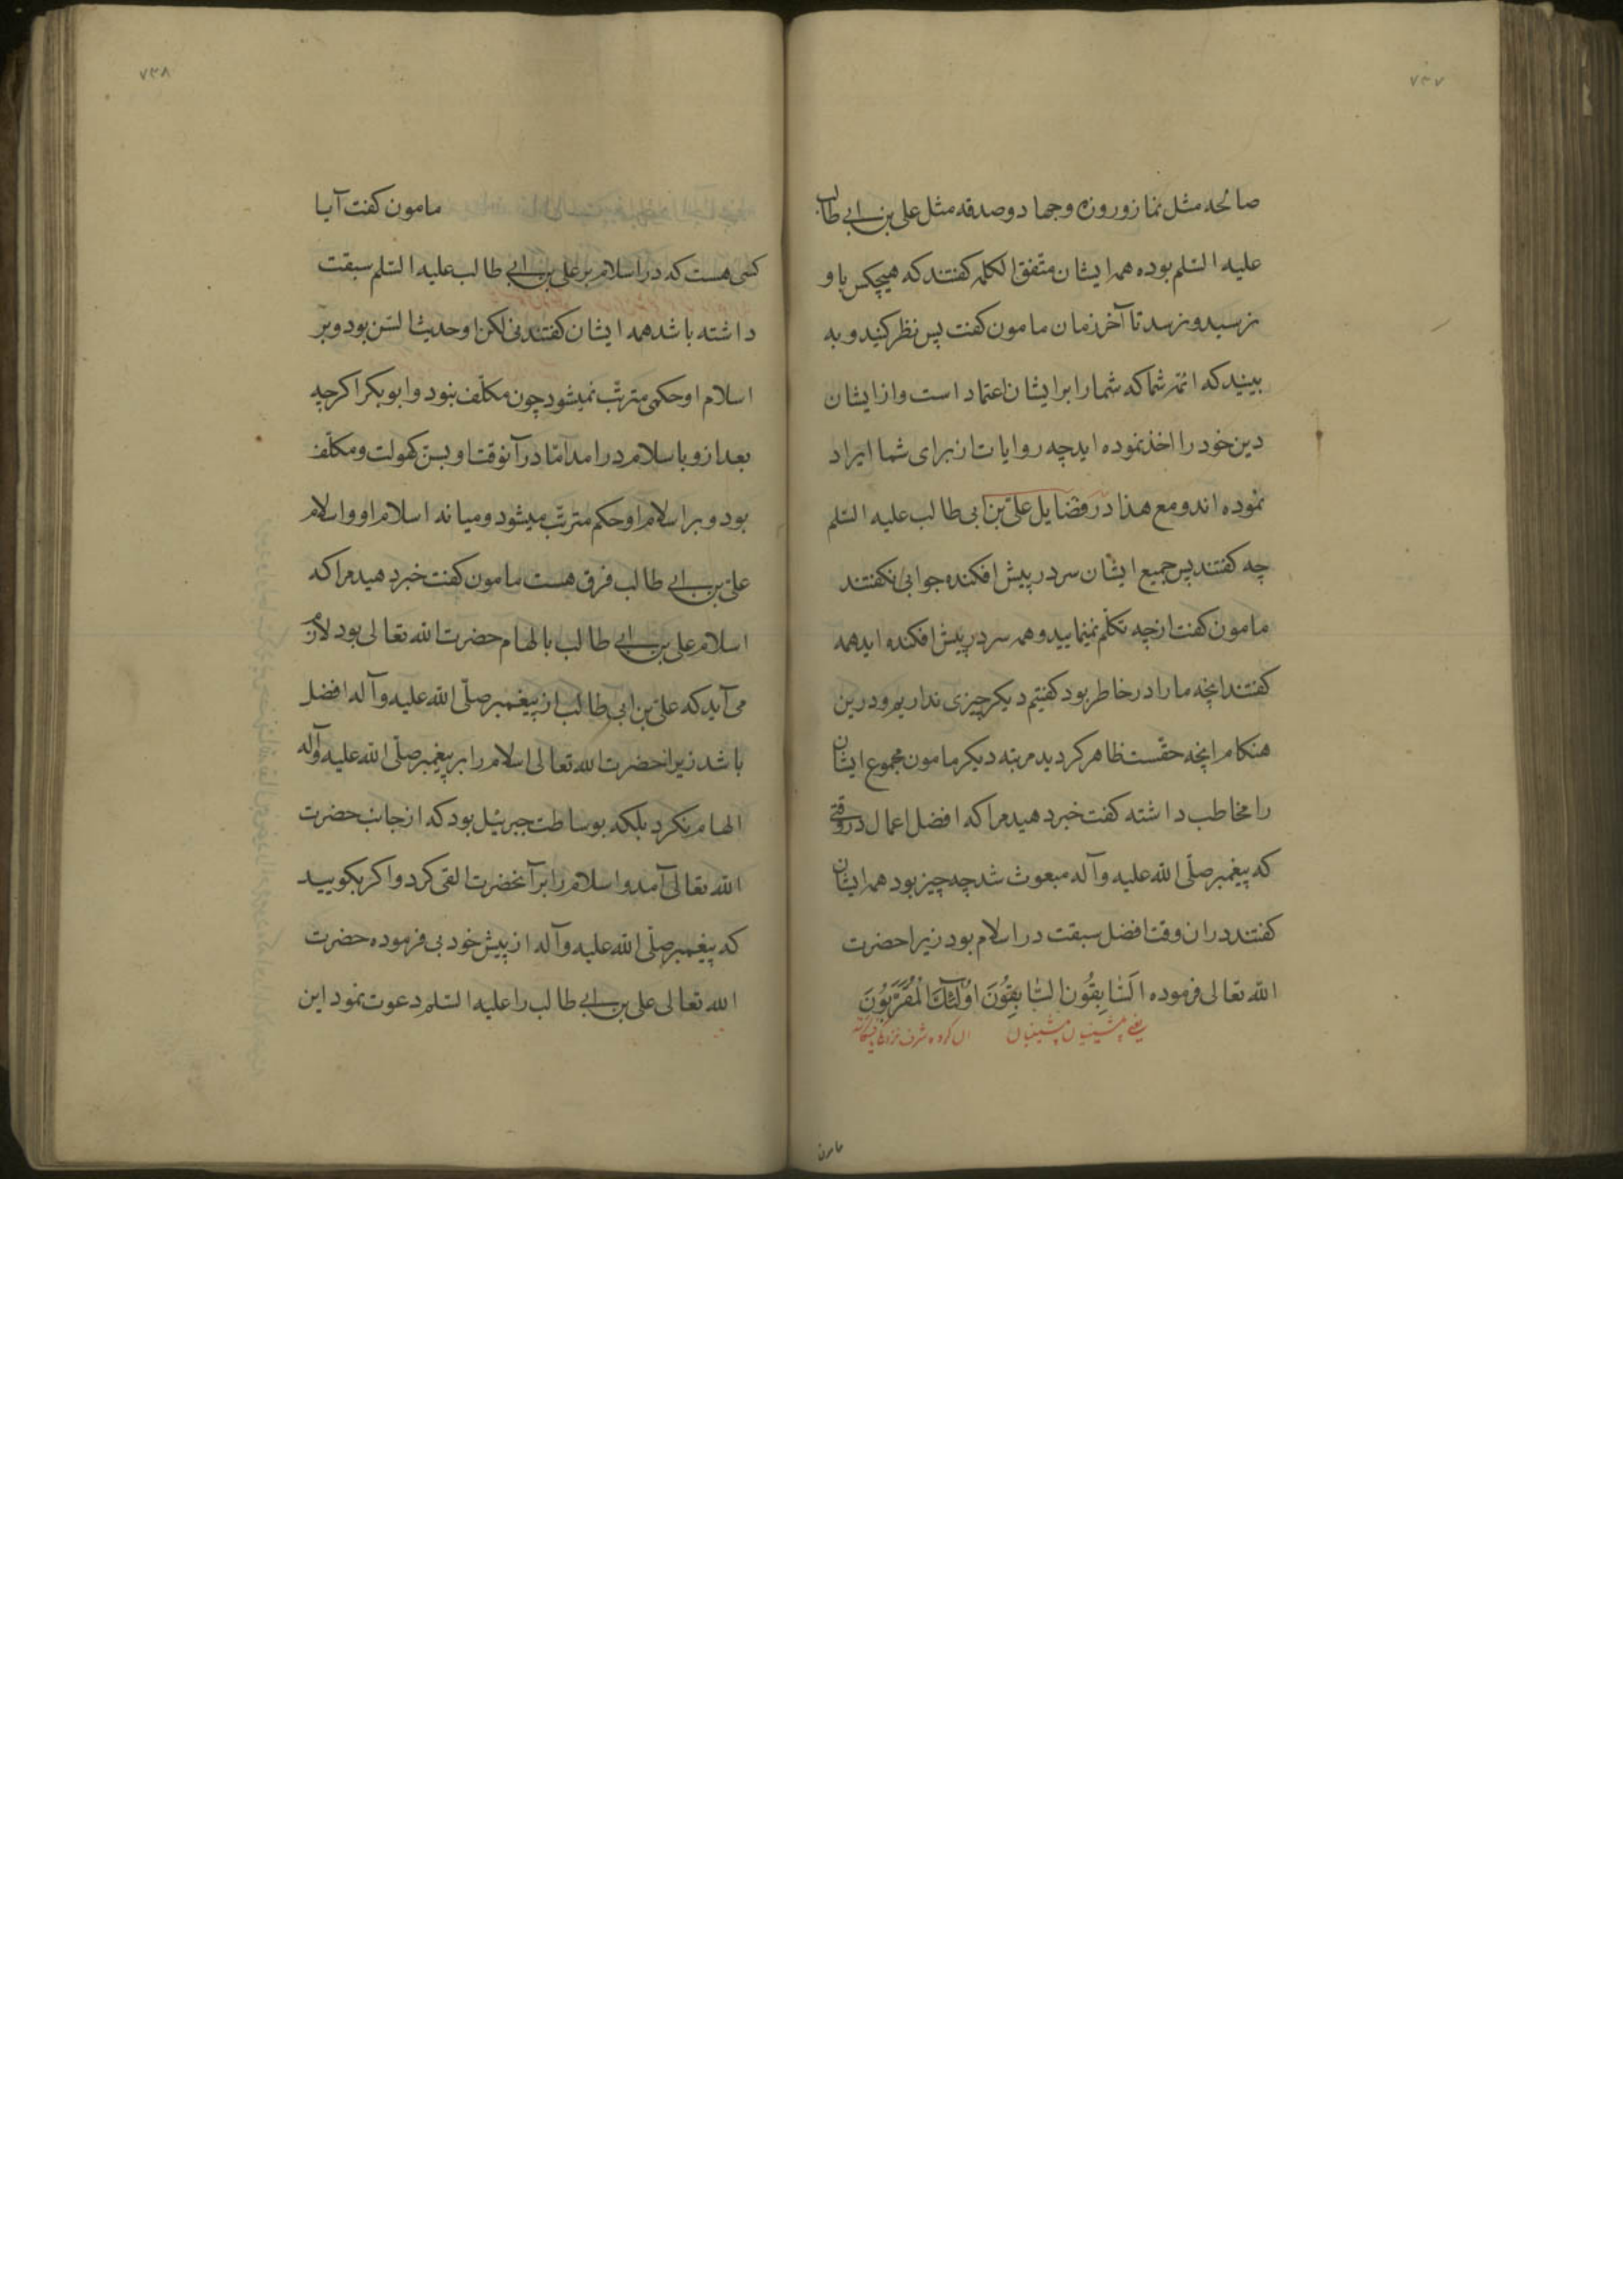 ۷۳۷
صالحه مثل نماز و روزه و جهاد و صدقه مثل علی بن ابی طالب
علیه السّلم بوده همه ایشان متّفق الکلمه کفتند که هیچکس باو
نرسید و نرسد تا آخر زمان مامون کفت پس نظر کنید و به
بینید که ائمّه شما که شما را بر ایشان اعتماد است و از ایشان
دین خود را اخذ نموده اید چه روایات از برای شما ایراد
نموده اند و مع هذا در فضایل علی بن ابی طالب علیه السّلم
چه کفتند پس جمیع ایشان سر در پیش افکنده جوابی نکفتند
مامون کفت از چه تکلّم نمینمایید و همه سر در پیش افکنده اید همه
کفتند انچه ما را در خاطر بود کفتیم دیکر چیزی نداریم و درین
هنکام انچه حقّست ظاهر کردید مرتبه دیکر مامون مجموع ایشان
را مخاطب داشته کفت خبر دهید مرا که افضل اعمال در وقتی
که پیغمبر صلّی الله علیه وآله مبعوث شد چه چیز بود همه ایشان
کفتند در ان وقت افضل سبقت در اسلام بود زیرا حضرت
الله تعالی فرموده اَلسّابِقُون السّابِقُونَ اُولٰئِكَ الْمُقَرَّبُونَ
یعنی پیشینیان پیشینیان ان کروه
مامون
۷۳۸
مامون کفت آیا
کسی هست که در اسلام بر علی بن ابی طالب علیه السّلم سبقت
داشته باشد همه ایشان کفتند نی لکن او حدیث السّن بود و بر
اسلام او حکمی مترتّب نمیشود چون مکلّف نبود و ابوبکر اکرچه
بعد از و باسلام در امد امّا در آنوقت او بسنّ کهولت و مکلّف
بود و بر اسلام او حکم مترتّب میشود و میانه اسلام او و اسلام
علی بن ابی طالب فرق هست مامون کفت خبر دهید مرا که
اسلام علی بن ابی طالب بالهام حضرت الله تعالی بود لازم
می آید که علی بن ابی طالب از پیغمبر صلّی الله علیه وآله افضل
باشد زیرا حضرت الله تعالی اسلام را بر پیغمبر صلّی الله علیه وآله
الهام نکرد بلکه بوساطت جبرئیل بود که از جانب حضرت
الله تعالی آمد و اسلام را بر آنحضرت القی کرد و اکر بکویید
که پیغمبر صلّی الله علیه وآله از پیش خود بی فرموده حضرت
الله تعالی علی بن ابی طالب را علیه السّلم دعوت نمود این